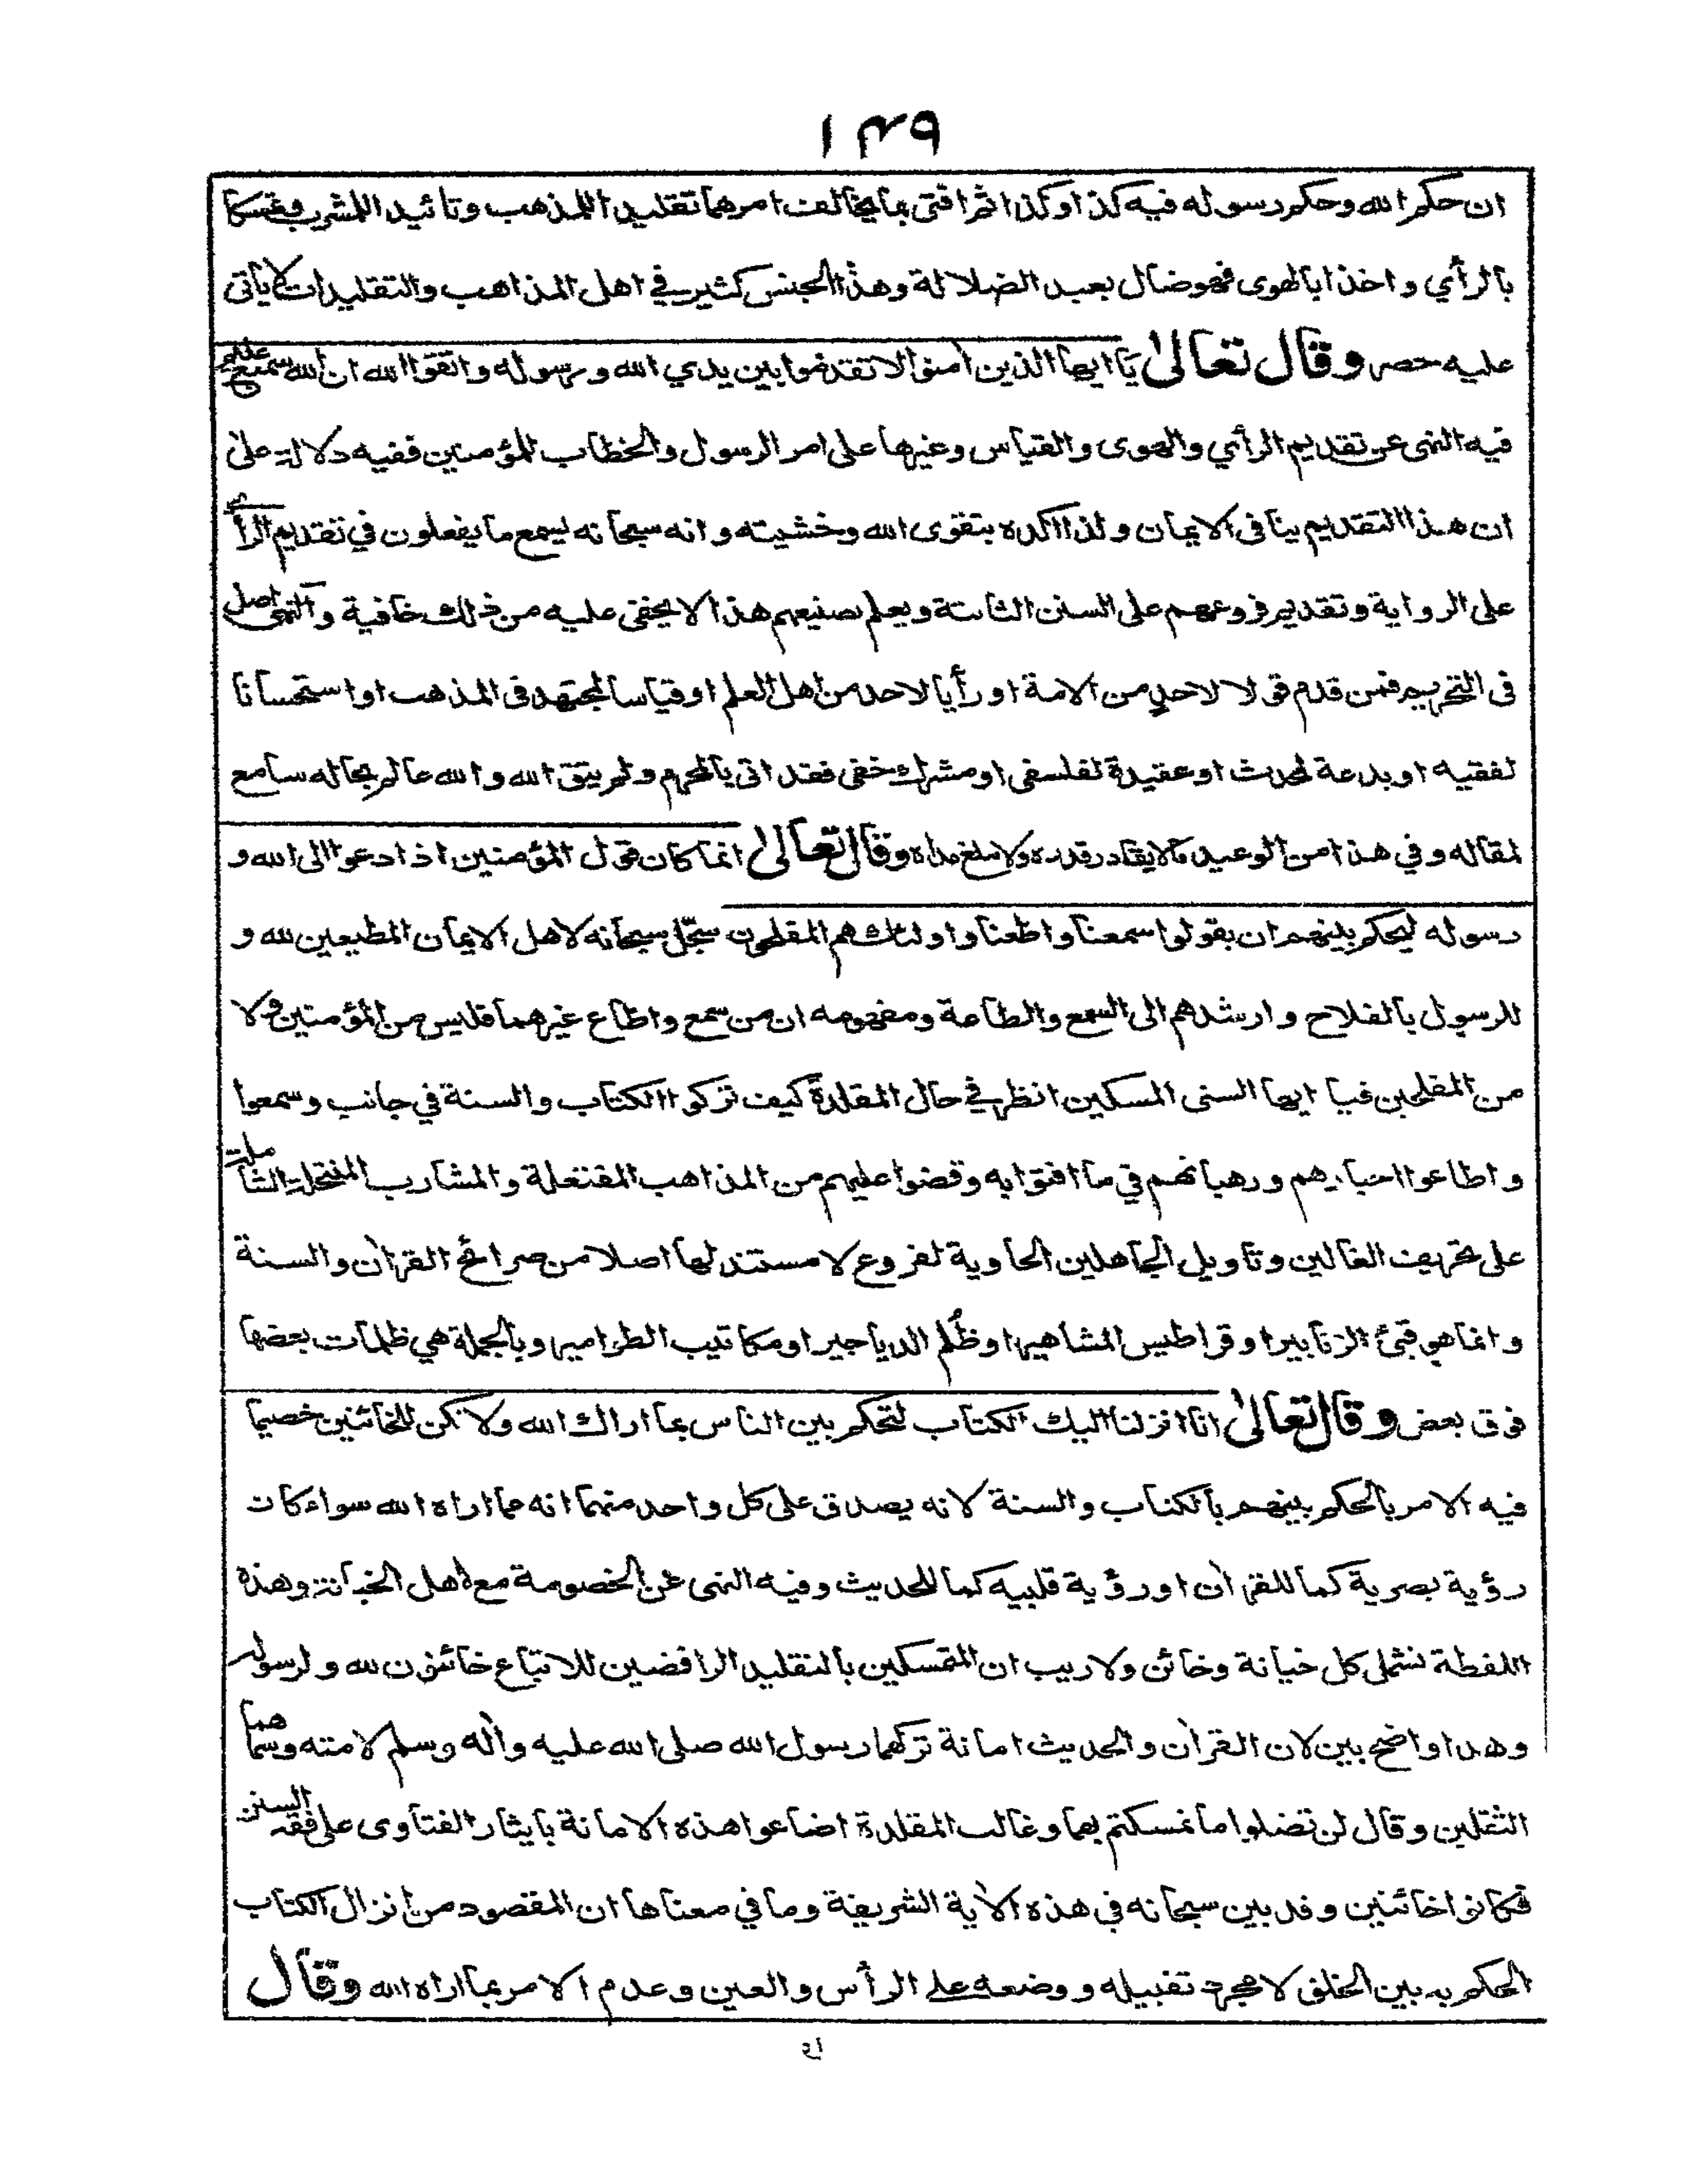 ١٣٩
ان حكم الله وحكم رسوله فيه كذا وكذا ثم افتى بما يخالف امرهما تقليدا للمذهب وتائيدا للمشرب وتمسكا
بالرأي واخذا بالهوى فهو ضال بعيد الضلالة وهذا الجنس كثير في اهل المذاهب والتقليدات لا ياتى
عليه حصر وقال تعالىٰ يا ايها الذين امنوا لا تقدموا بين يدي الله ورسوله واتقوا الله ان الله سميع عليم
فيه النهى عن تقديم الرأي والهوى والقياس وغيرها على امر الرسول والخطاب للمؤمنين ففيه دلالة على
ان هذا التقديم ينافى الايمان ولذا اكده بتقوى الله وخشيته وانه سبحانه ليسمع ما يفعلون في تقديم الرأي
على الرواية وتقديم فروعهم على السنن الثابتة ويعلم بصنيعهم هذا لا يخفى عليه من ذلك خافية والنهى اصل
فى التحريم فمن قدم قولا لاحد من الامة او رأيا لاحد من اهل العلم او قياسا لمجتهد فى المذهب او استحسانا
لفقيه او بدعة لمحدث او عقيدة لفلسفى او مشرك خفى فقد اتى بالمحرم ولم يتق الله والله عالم بحاله سامع
لمقاله وفي هذا من الوعيد ما لا يقادر قدره ولا يبلغ مداه وقال تعالىٰ انما كان قول المؤمنين اذا دعوا الى الله و
رسوله ليحكم بينهم ان يقولوا سمعنا واطعنا واولئك هم المفلحون سجّل سبحانه لاهل الايمان المطيعين لله و
للرسول بالفلاح وارشدهم الى السمع والطاعة ومفهومه ان من سمع واطاع غيرهما فليس من المؤمنين ولا
من المفلحين فيا ايها السنى المسكين انظر في حال المقلدة كيف تركوا الكتاب والسنة في جانب وسمعوا
واطاعوا احبارهم ورهبانهم في ما افتوا به وقضوا عليهم من المذاهب المفتعلة والمشارب المنتحلة الشاملة
على تحريف الغالين وتاويل الجاهلين الحاوية لفروع لا مستند لها اصلا من صرائح القران والسنة
وانما هو قئ الزنابير او قراطيس المشاهير او ظُلم الدياجير او مكاتيب الطوامير وبالجملة هي ظلمات بعضها
فوق بعض وقال تعالىٰ انا انزلنا اليك الكتاب لتحكم بين الناس بما اراك الله ولا تكن للخائنين خصيما
فيه الامر بالحكم بينهم بالكتاب والسنة لانه يصدق على كل واحد منهما انه مما اراه الله سواء كانت
رؤية بصرية كما للقران او رؤية قلبيه كما للحديث وفيه النهى عن الخصومة مع اهل الخيانة وهذه
اللفظة تشمل كل خيانة وخائن ولا ريب ان المتمسكين بالتقليد الرافضين للاتباع خائنون لله ولرسوله
وهذا واضح بين لان القران والحديث امانة تركهما رسول الله صلى الله عليه واله وسلم لامته وسماهما
الثقلين وقال لن تضلوا ما تمسكتم بهما وغالب المقلدة اضاعوا هذه الامانة بايثار الفتاوى على فقه السنن
فكانوا خائنين وقد بين سبحانه في هذه الاية الشريفة وما في معناها ان المقصود من انزال الكتاب
الحكم به بين الخلق لا مجرد تقبيله ووضعه على الرأس والعين وعدم الامر بما اراه الله وقال